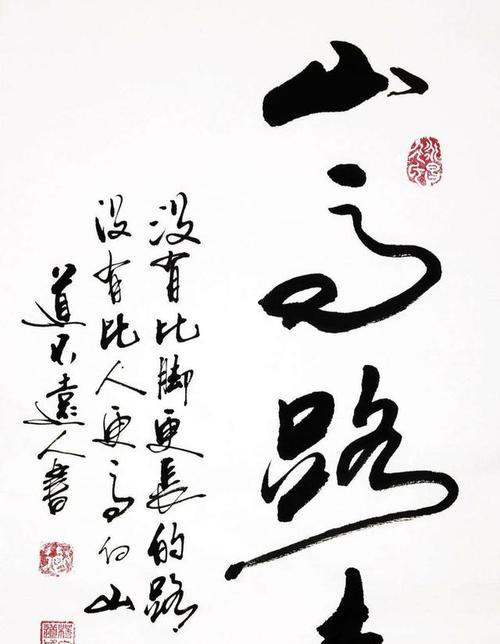 山高路
没有比脚更長的路
没有比人更高的山
道不遠人書